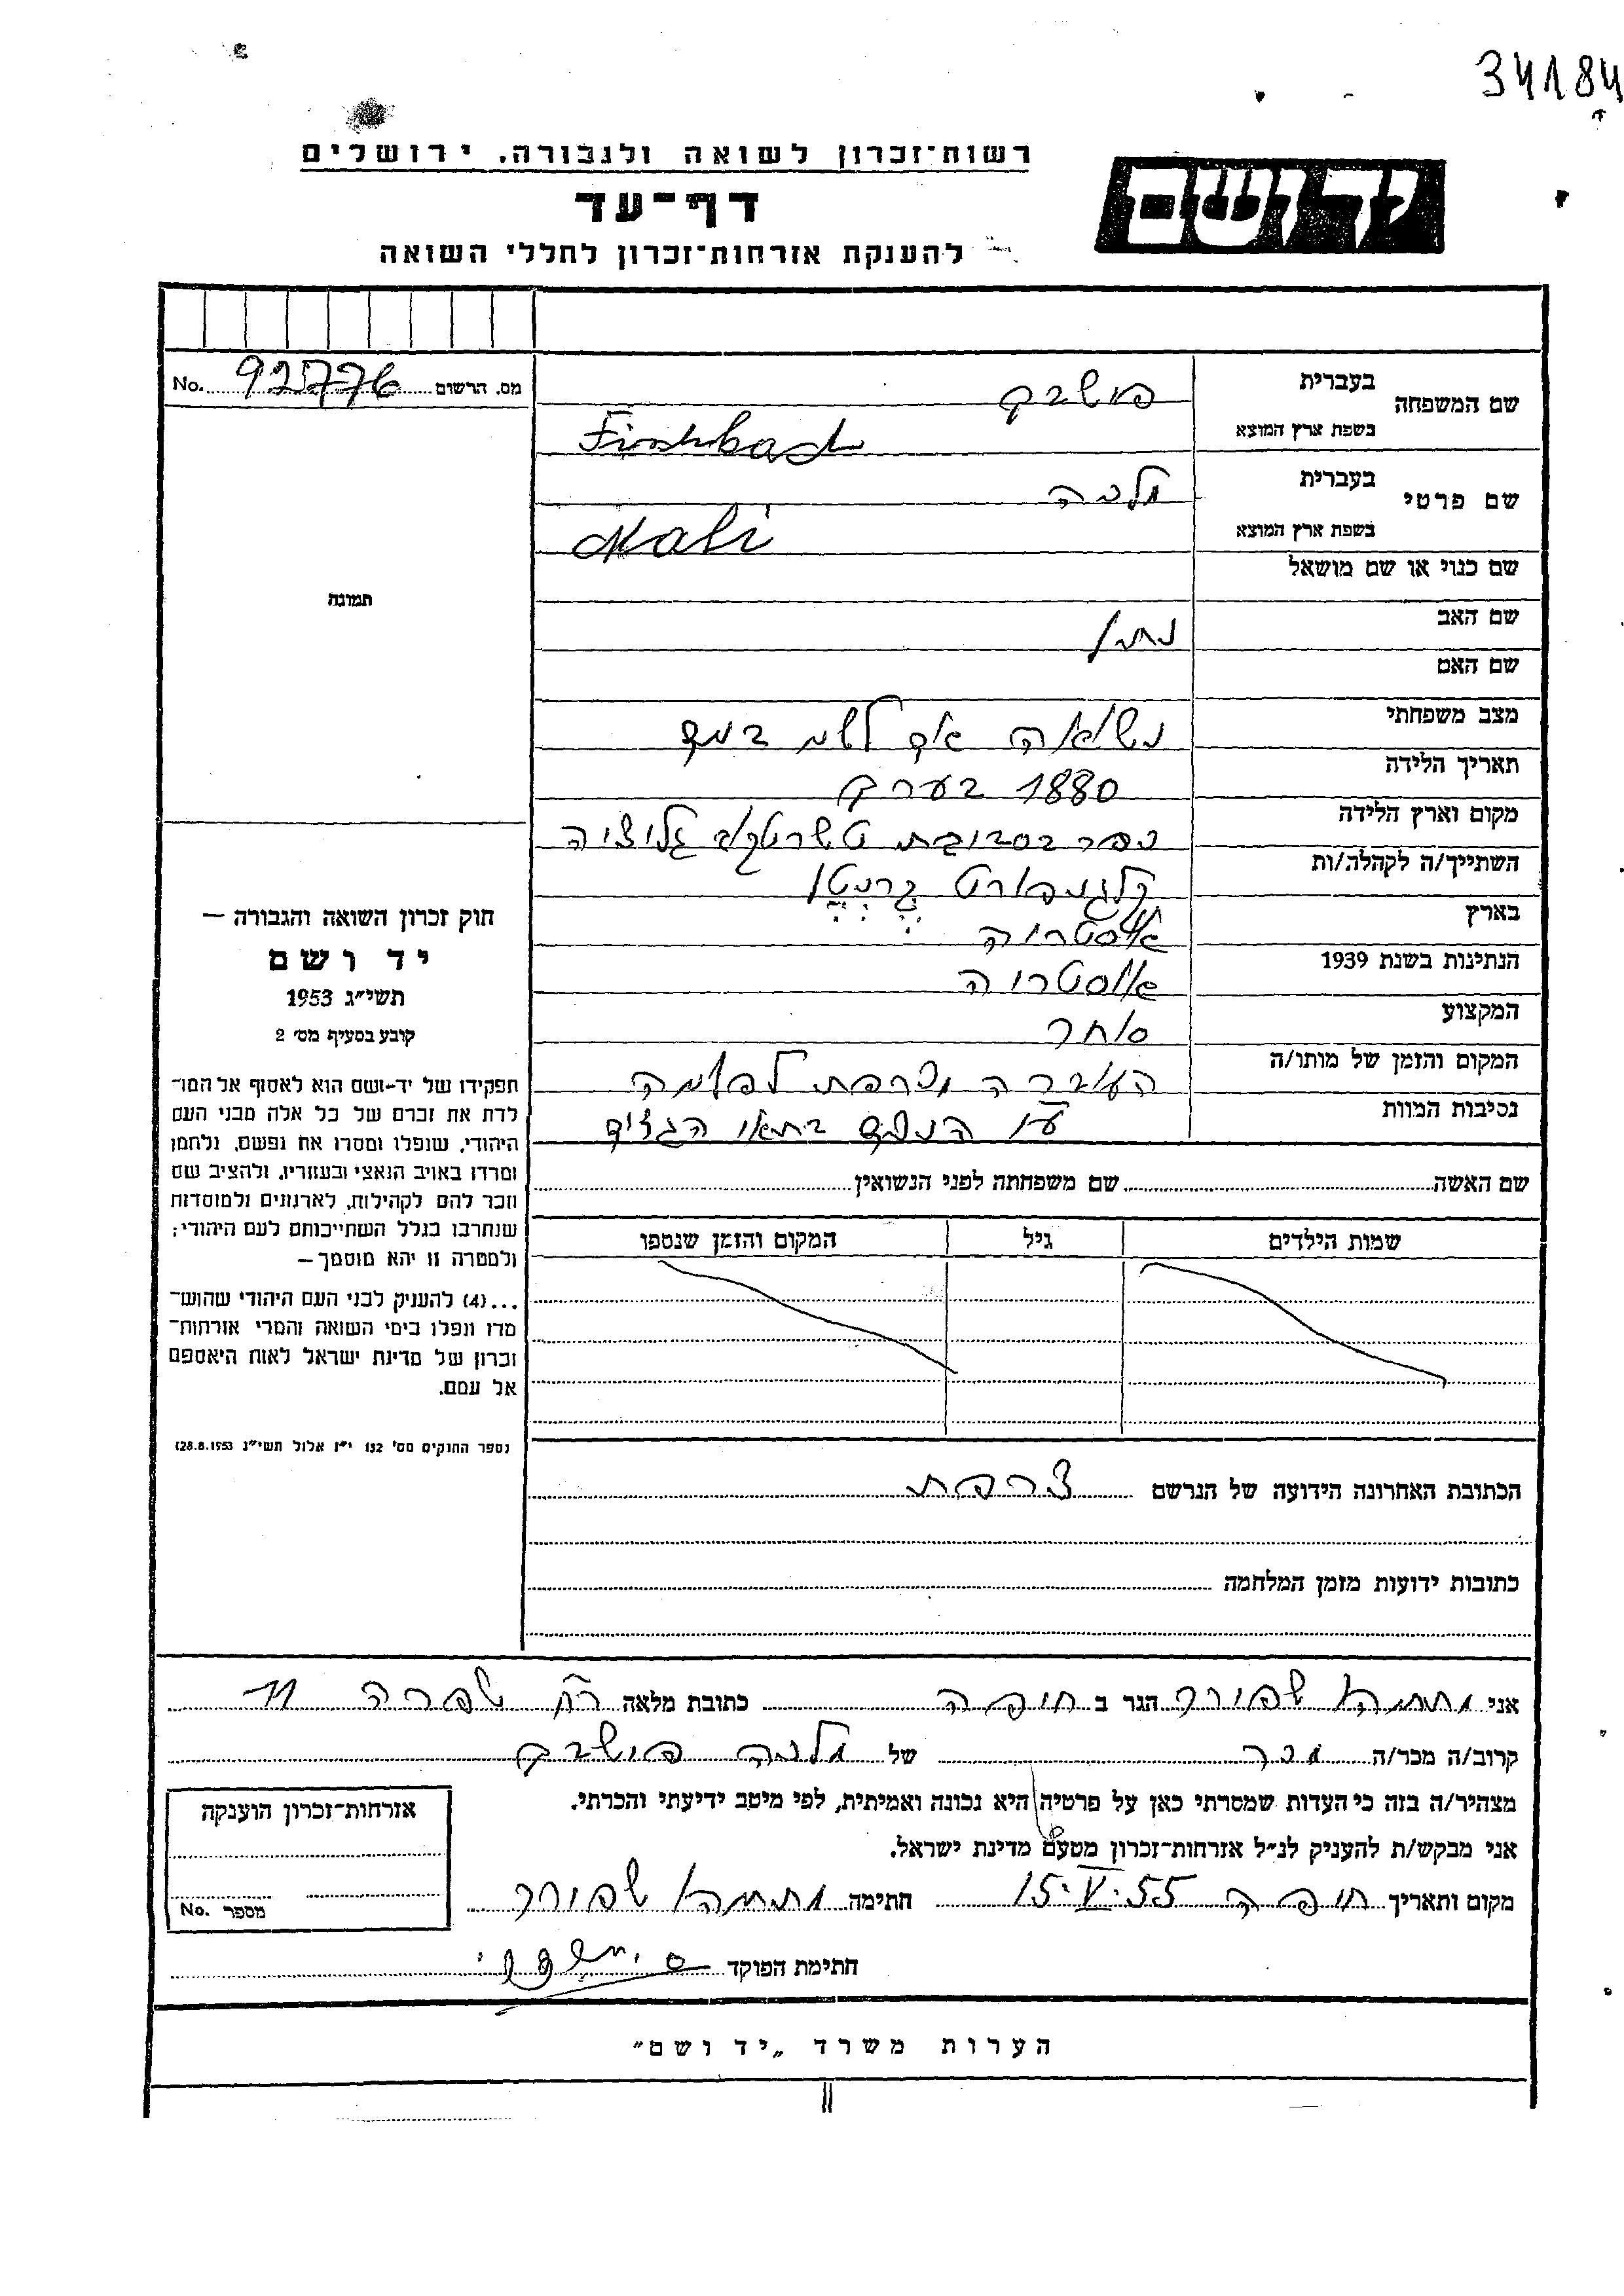 34184
רשות־זכרון לשואה ולגבורה, ירושלים
יד ושם
דף־עד
להענקת אזרחות־זכרון לחללי השואה
מס. הרשום 92776 No.
שם המשפחה בעברית פישבך
בשפת ארץ המוצא Fischbach
שם פרטי בעברית מלכה
בשפת ארץ המוצא Mali
שם כנוי או שם מושאל
שם האב נתן
שם האם
מצב משפחתי נשואה
תאריך הלידה 1880 בערך
מקום וארץ הלידה כפר בסביבת גליציה
השתייך/ה לקהלה/ות קלגנפורט קרנטן
בארץ אוסטריה
הנתינות בשנת 1939 אוסטריה
המקצוע סוחר
המקום והזמן של מותו/ה העברה מצרפת
נסיבות המוות בתאי הגזים
תמונה
חוק זכרון השואה והגבורה —
יד ושם
תשי״ג 1953
קובע בסעיף מס׳ 2
תפקידו של יד־ושם הוא לאסוף אל המו־
לדת את זכרם של כל אלה מבני העם
היהודי, שנפלו ומסרו את נפשם, נלחמו
ומרדו באויב הנאצי ובעוזריו, ולהציב שם
וזכר להם לקהילות, לארגונים ולמוסדות
שנחרבו בגלל השתייכותם לעם היהודי;
ולמטרה זו יהא מוסמך —
...(4) להעניק לבני העם היהודי שהוש־
מדו ונפלו בימי השואה והמרי אזרחות־
זכרון של מדינת ישראל לאות היאספם
אל עמם.
(ספר החוקים מס׳ 132 י״ז אלול תשי״ג 28.8.1953)
שם האשה שם משפחתה לפני הנשואין
שמות הילדים גיל המקום והזמן שנספו
הכתובת האחרונה הידועה של הנרשם צרפת
כתובות ידועות מזמן המלחמה
אני הגר ב חיפה כתובת מלאה רח שפרה 11
קרוב/ה מכר/ה מכר של מלכה פישבך
מצהיר/ה בזה כי העדות שמסרתי כאן על פרטיה היא נכונה ואמיתית, לפי מיטב ידיעתי והכרתי.
אני מבקש/ת להעניק לנ״ל אזרחות־זכרון מטעם מדינת ישראל.
מקום ותאריך חיפה 15.V.55 חתימה
חתימת הפוקד
אזרחות־זכרון הוענקה
מספר No.
הערות משרד „יד ושם״